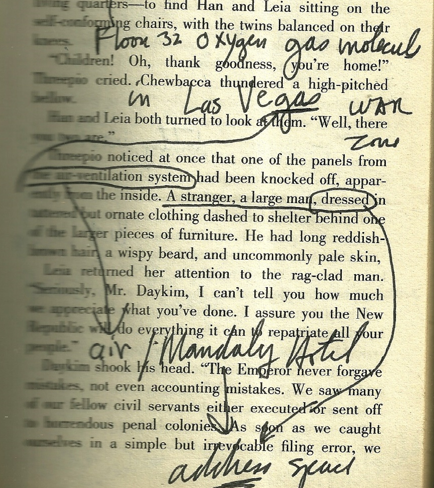 living quarters—to find Han and Leia sitting on the
self-conforming chairs, with the twins balanced on their
knees.
Floor 32 Oxygen gas molecul
"Children! Oh, thank goodness, you're home!"
Threepio cried. Chewbacca thundered a high-pitched
bellow.
in Las Vegas WAR
Zone
Han and Leia both turned to look at them. "Well, there
you two are."
Threepio noticed at once that one of the panels from
the air-ventilation system had been knocked off, appar-
ently from the inside. A stranger, a large man, dressed in
tattered but ornate clothing dashed to shelter behind one
of the larger pieces of furniture. He had long reddish-
brown hair, a wispy beard, and uncommonly pale skin,
Leia returned her attention to the rag-clad man.
"Seriously, Mr. Daykim, I can't tell you how much
we appreciate what you've done. I assure you the New
Republic will do everything it can to repatriate all your
people."
air / Mandalay Hotel
Daykim shook his head. "The Emperor never forgave
mistakes, not even accounting mistakes. We saw many
of our fellow civil servants either executed or sent off
to horrendous penal colonies. As soon as we caught
ourselves in a simple but irrevocable filing error, we
address space